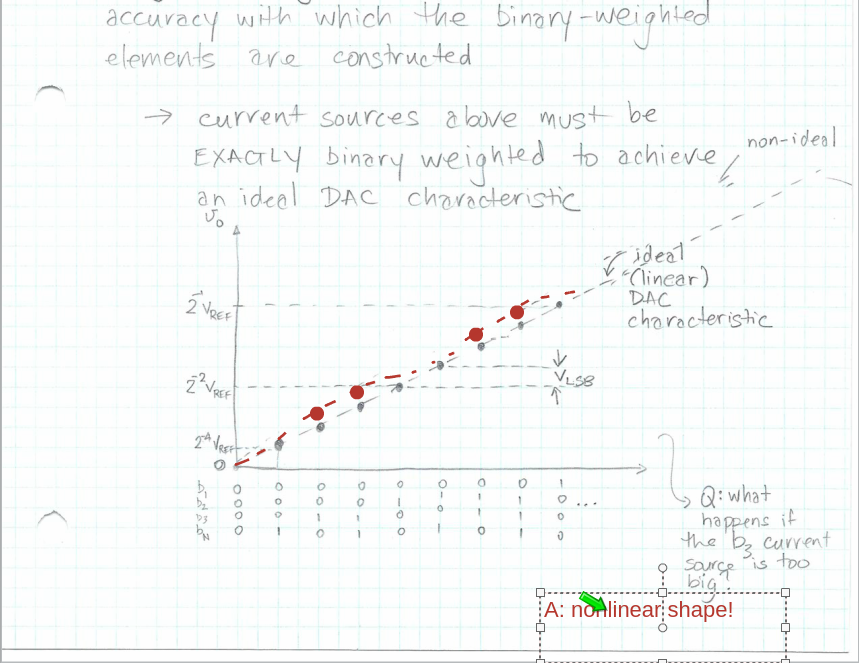 accuracy with which the binary-weighted
elements are constructed
→ current sources above must be
EXACTLY binary weighted to achieve
an ideal DAC characteristic
non-ideal
υo
ideal
(linear)
DAC
characteristic
2^-1 VREF
VLSB
2^-2 VREF
2^-4 VREF
0
b1 0 0 0 0 0 0 0 0 1
b2 0 0 0 0 1 1 1 1 0 ...
b3 0 0 1 1 0 0 1 1 0
bN 0 1 0 1 0 1 0 1 0
Q: what
happens if
the b3 current
source is too
big?
A: nonlinear shape!